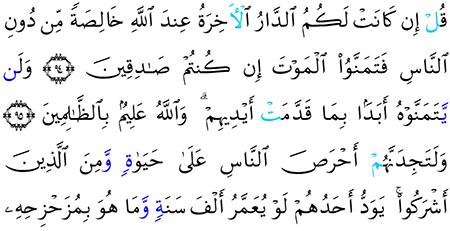 قُلۡ إِن كَانَتۡ لَكُمُ ٱلدَّارُ ٱلۡأٓخِرَةُ عِندَ ٱللَّهِ خَالِصَةٗ مِّن دُونِ
ٱلنَّاسِ فَتَمَنَّوُاْ ٱلۡمَوۡتَ إِن كُنتُمۡ صَٰدِقِينَ ٩٤ وَلَن
يَتَمَنَّوۡهُ أَبَدَۢا بِمَا قَدَّمَتۡ أَيۡدِيهِمۡۚ وَٱللَّهُ عَلِيمُۢ بِٱلظَّٰلِمِينَ ٩٥
وَلَتَجِدَنَّهُمۡ أَحۡرَصَ ٱلنَّاسِ عَلَىٰ حَيَوٰةٖ وَمِنَ ٱلَّذِينَ
أَشۡرَكُواْۚ يَوَدُّ أَحَدُهُمۡ لَوۡ يُعَمَّرُ أَلۡفَ سَنَةٖ وَمَا هُوَ بِمُزَحۡزِحِهِۦ